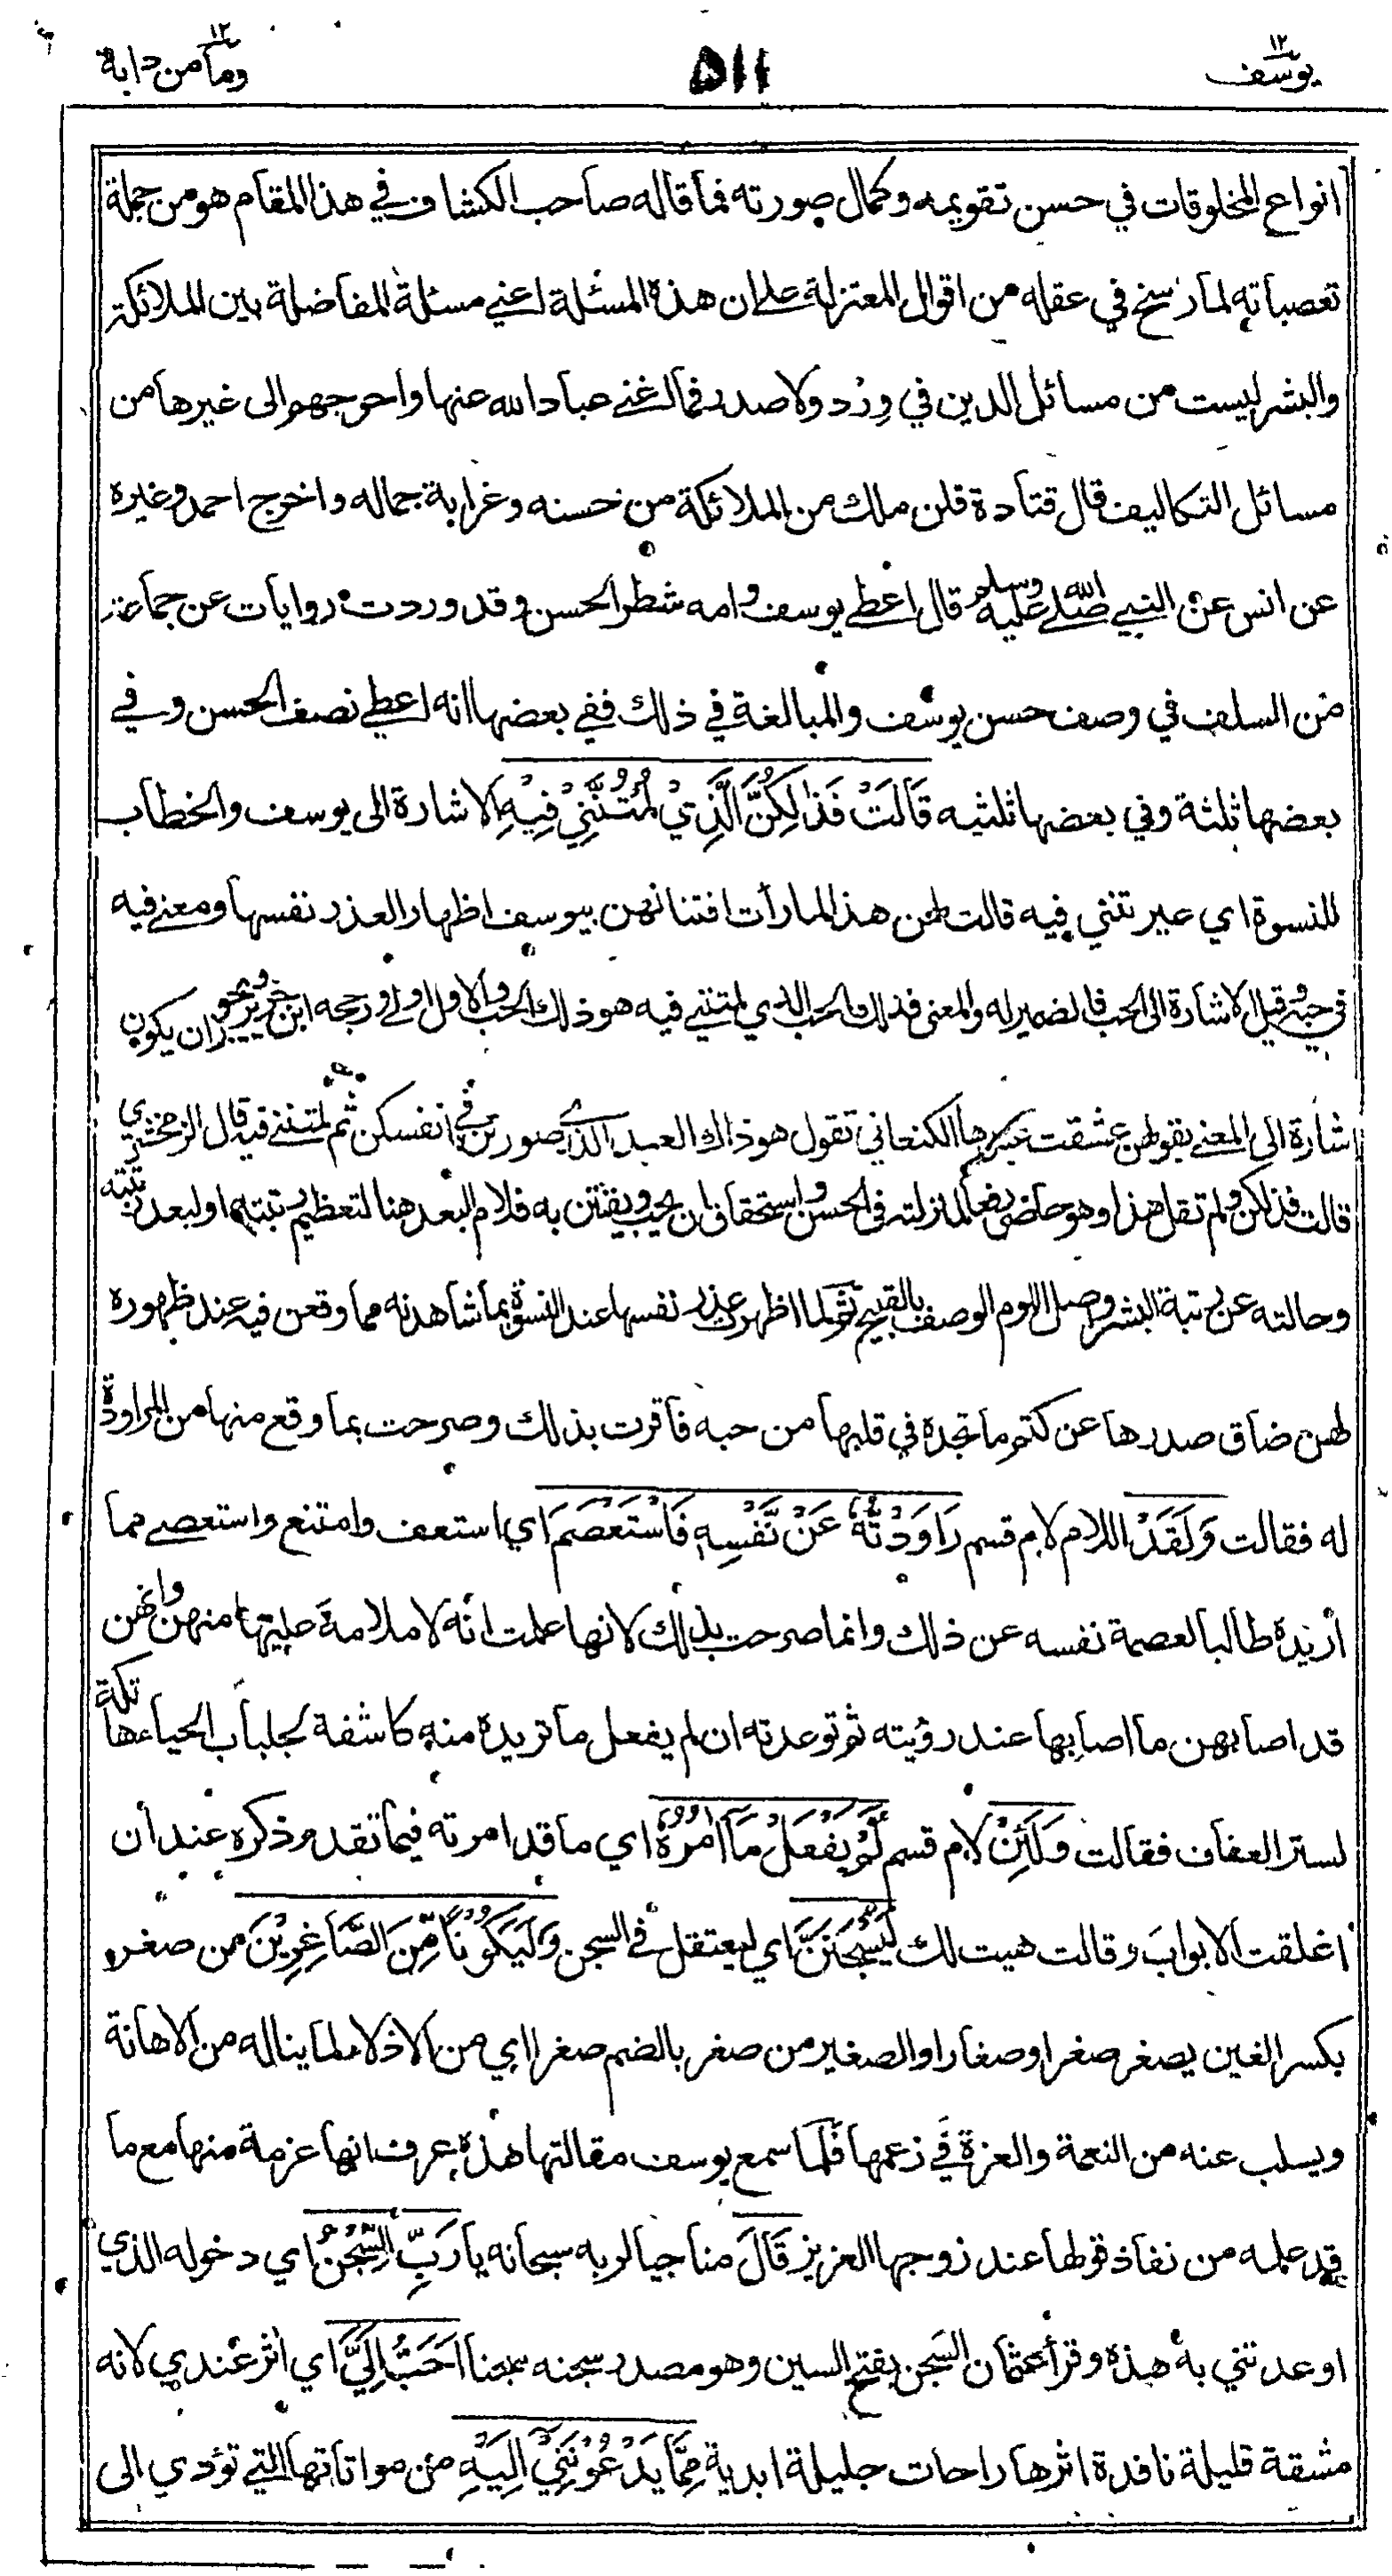 يوسف ١٢
٥١١
وما من دابة ١٢
انواع المخلوقات في حسن تقويمه وكمال صورته فما قاله صاحب الكشاف في هذا المقام هو من جملة
تعصباته لما رسخ في عقله من اقوال المعتزلة على ان هذه المسئلة اعني مسئلة المفاضلة بين الملائكة
والبشر ليست من مسائل الدين في وِرْد ولا صدر فما اغنى عباد الله عنها واحوجهم الى غيرها من
مسائل التكاليف قال قتادة قلن ملك من الملائكة من حسنه وغرابة جماله واخرج احمد وغيره
عن انس عن النبي صلى الله عليه وسلم قال اعطي يوسف وامه شطر الحسن وقد وردت روايات عن جماعة
من السلف في وصف حسن يوسف والمبالغة في ذلك ففي بعضها انه اعطي نصف الحسن وفي
بعضها ثلثة وفي بعضها ثلثيه قَالَتْ فَذٰلِكُنَّ الَّذِيْ لُمْتُنَّنِيْ فِيْهِ الاشارة الى يوسف والخطاب
للنسوة اي عيرتنني فيه قالت لهن هذا لما رأت افتتانهن بيوسف اظهارا لعذر نفسها ومعنى فيه
في حبه وقيل الاشارة الى الحب فالضمير له والمعنى فذلك الحب الذي لمتنني فيه هو ذلك الحب والاول اولى ورجحه ابن جرير ويجوز ان يكون
شارة الى المعنى بقولهن عشقت عبدها الكنعاني تقول هو ذاك العبد الذي صورتن في انفسكن ثم لمتنني فيه قال الزمخشري
قالت فذلكن ولم تقل هذا وهو حاضر رفعا لمنزلته في الحسن واستحقاق ان يحب ويفتتن به فلام البعد هنا لتعظيم رتبتها او لبعد رتبته
وحالته عن رتبة البشر واصل اللوم الوصف بالقبيح ثم لما اظهرت عذر نفسها عند النسوة بما شاهدنه مما وقعن فيه عند ظهوره
لهن ضاق صدرها عن كتم ما تجده في قلبها من حبه فاقرت بذلك وصرحت بما وقع منها من المراودة
له فقالت وَلَقَدْ اللام لام قسم رَاوَدْتُّهٗ عَنْ نَّفْسِهٖ فَاسْتَعْصَمَ اي استعف وامتنع واستعصى مما
أريده طالبا لعصمة نفسه عن ذلك وانما صرحت بذلك لانها علمت انه لا ملامة عليها منهن وانهن
قد اصابهن ما اصابها عند رؤيته ثم توعدته ان لم يفعل ما تريده منه كاشفة لجلباب الحياء هاتكة
لستر العفاف فقالت وَلَئِنْ لام قسم لَّمْ يَفْعَلْ مَآ اٰمُرُهٗ اي ما قد امرته فيما تقدم ذكره عند أن
اغلقت الابوابَ وقالت هيت لك لَيُسْجَنَنَّ اي ليعتقل في السجن وَلَيَكُوْنًا مِّنَ الصَّاغِرِيْنَ من صغر
بكسر الغين يصغر صغرا وصغارا والصغير من صغر بالضم صغرا اي من الاذلاء لما يناله من الاهانة
ويسلب عنه من النعمة والعزة في زعمها فلما سمع يوسف مقالتها هذه عرف انها عزمة منها مع ما
قد علمه من نفاذ قولها عند زوجها العزيز قَالَ مناجيا لربه سبحانه يا رَبِّ السِّجْنُ اي دخوله الذي
اوعدتني به هذه وقرأ عثمان السَجن بفتح السين وهو مصدر سجنه سجنا اَحَبُّ اِلَيَّ اي اثر عندي لانه
مشقة قليلة نافدة اثرها راحات جليلة ابدية مِمَّا يَدْعُوْنَنِيْ اِلَيْهِ من مواتاتها التي تؤدي الى